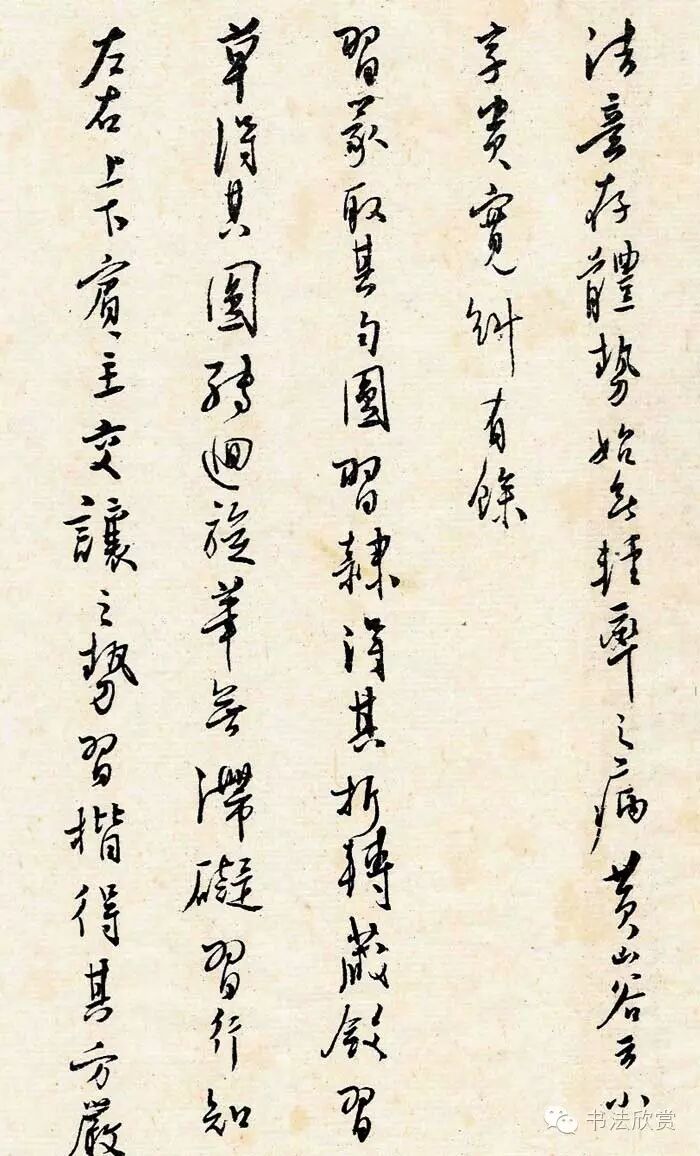 法意存體勢始無輕率之病黃山谷云小
字貴寬綽有餘
習篆取其勻圓習隸得其折轉藏斂習
草得其圓轉迴旋筆無滯礙習行知
左右上下賓主交讓之勢習楷得其方嚴
书法欣赏